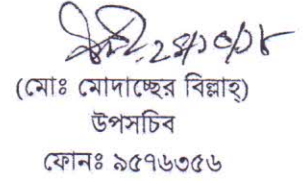 (মোঃ মোদাচ্ছের বিল্লাহ্)
উপসচিব
ফোনঃ ৯৫৭৬৩৫৬